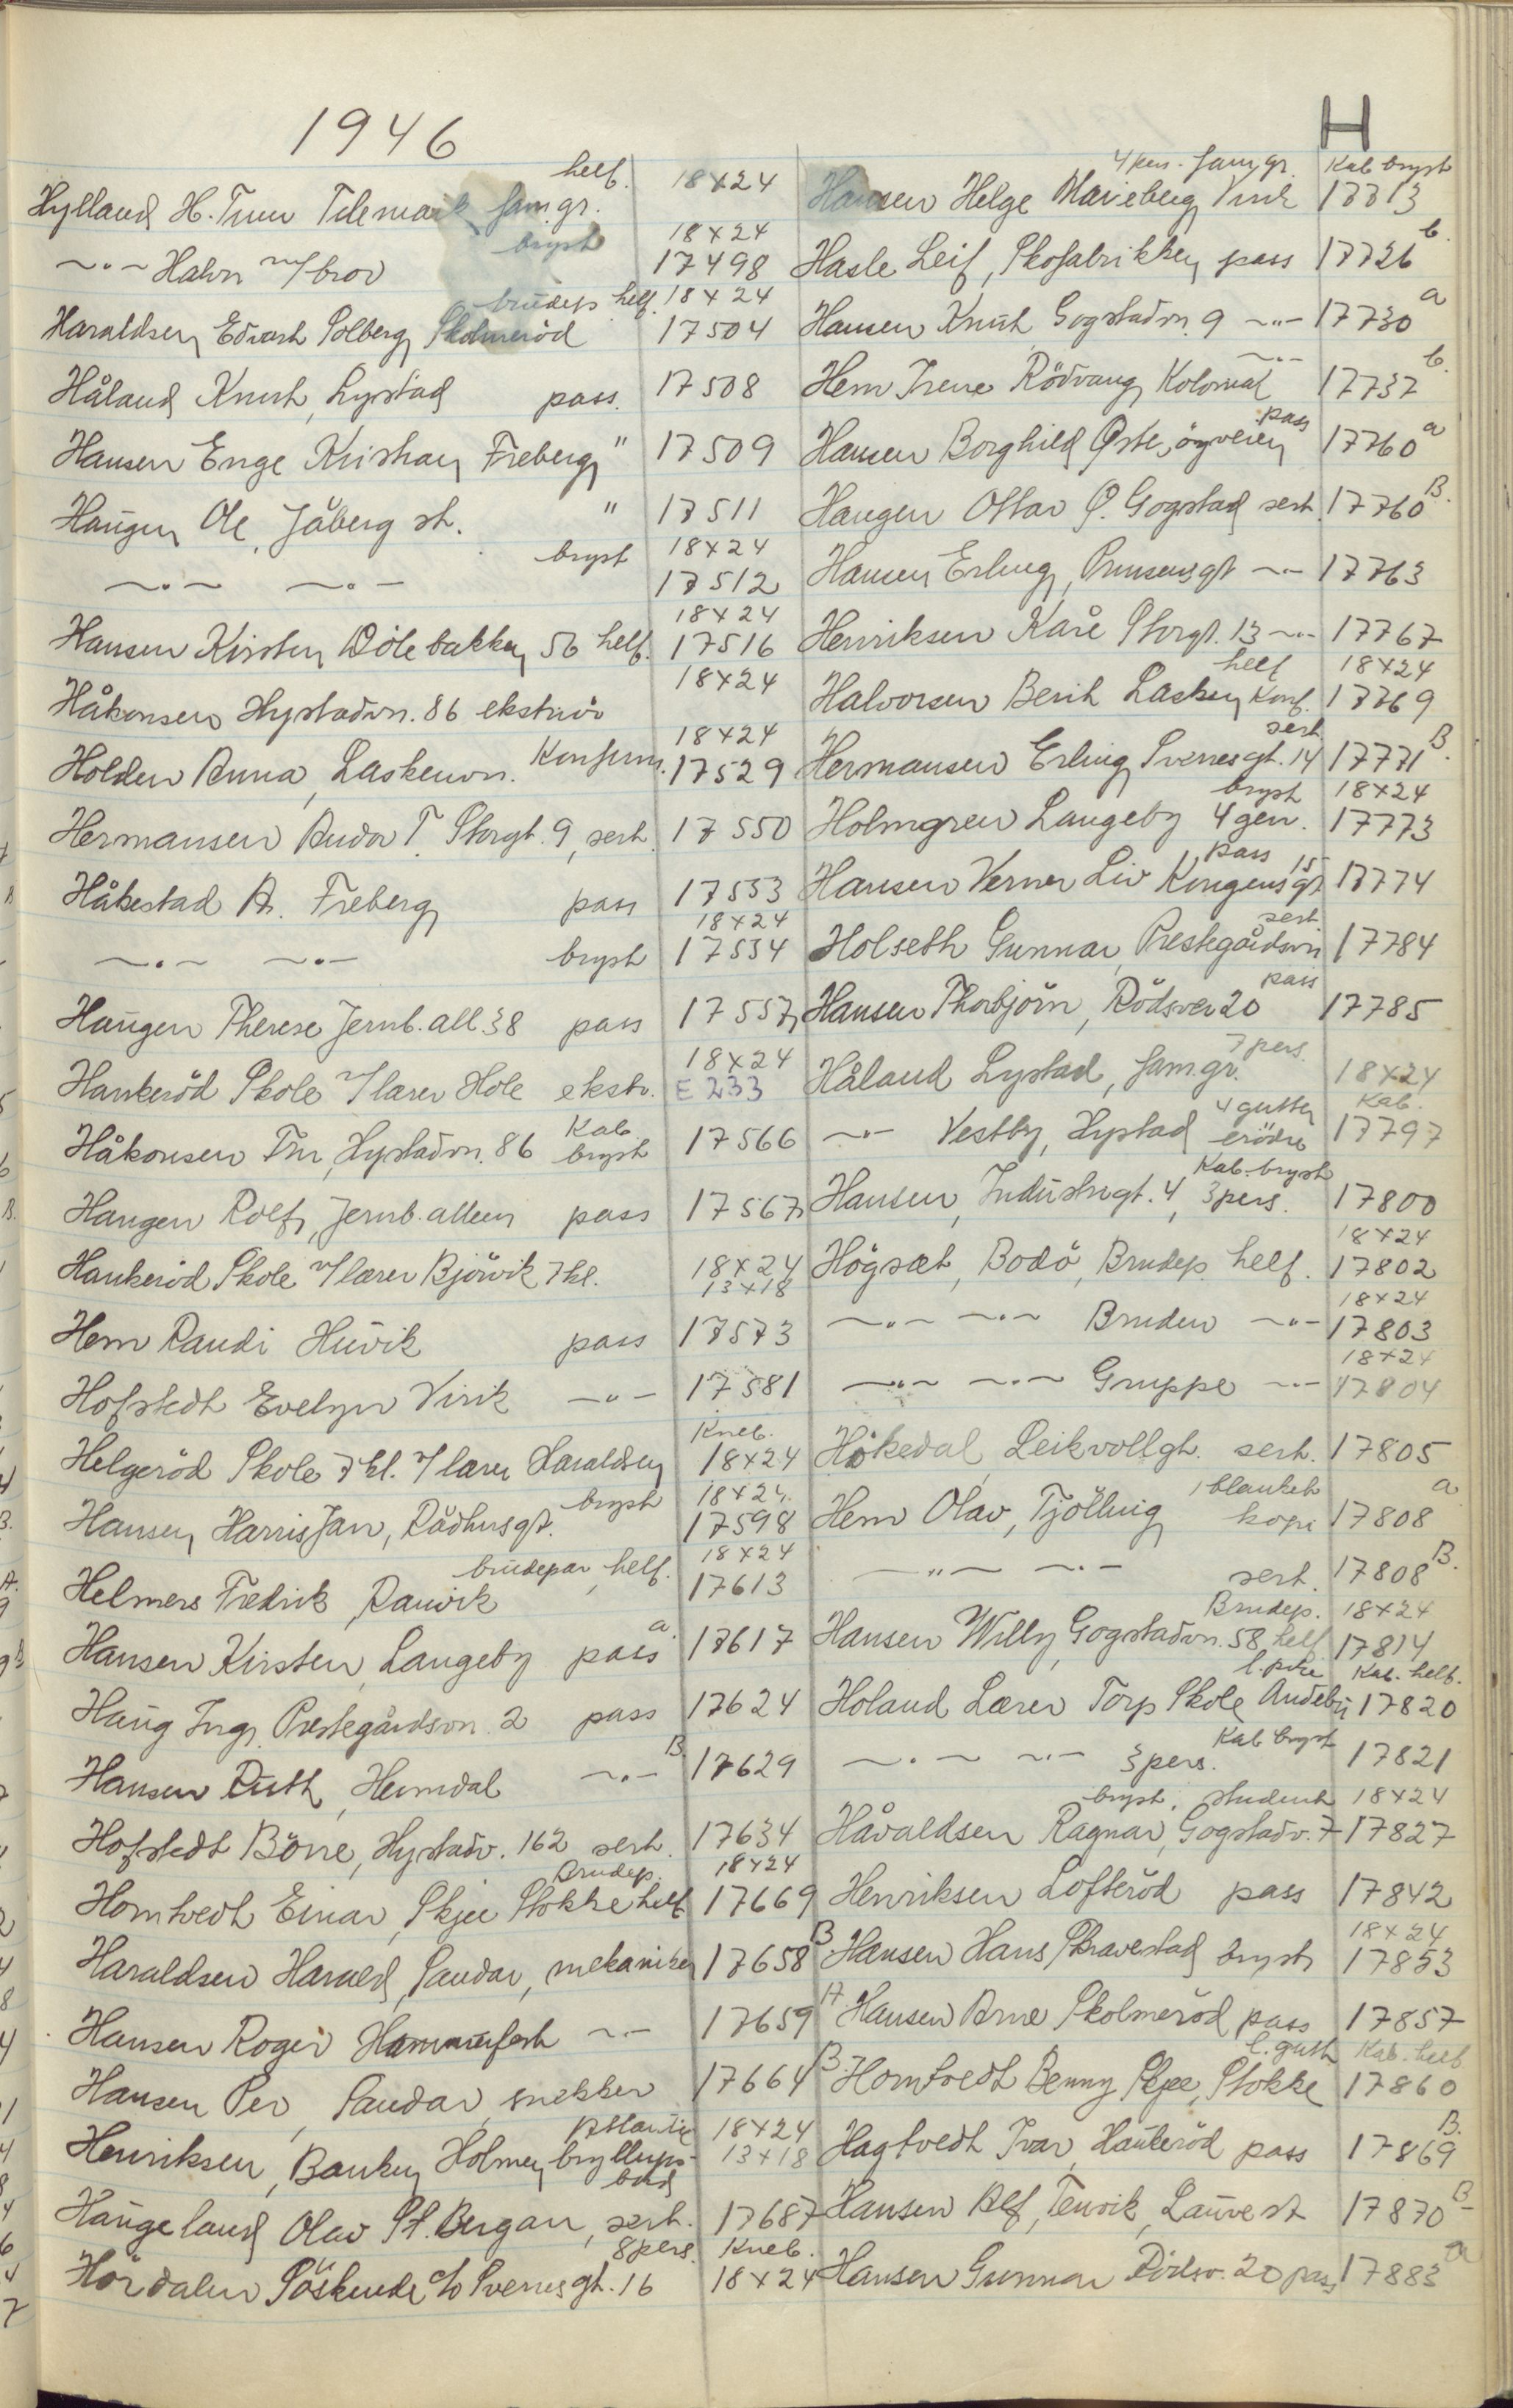 1946
H
helf. 18x24
Hylland H. Tuun Telemark fam.gr.
bryst 18x24
~·~ Halvn m/bror 17498
brudep. helf. 18x24
Haraldsen Edvart Solberg Skolmeröd 17504
Håland Knut, Lystad pass. 17508
Hansen Enge Kristian Freberg " 17509
Haugen Ole, Jåberg st. " 17511
bryst 18x24
~·~ ~·~ 17512
18x24
Hansen Kirsten Dölebakken 56 helf. 17516
18x24
Håkonsen Hystadvn. 86 eksteriör
18x24
Holden Anna, Laskenvn. Konfirm. 17529
Hermansen Andor T. Storgt. 9, sert. 17550
Håkestad A. Freberg pass 17553
18x24
~·~ ~·~ bryst 17554
Haugen Therese Jernb.all. 38 pass 17557
18x24
Haukeröd Skole v/lærer Hole ekstr. E 233
Kab
Håkonsen Thr, Hystadvn. 86 bryst 17566
Haugen Rolf, Jernb.alleen pass 17567
Haukeröd Skole v/lærer Björvik 7kl. 18x24
13x18
Hem Randi Huvik pass 17573
Hofstedt Evelyn Virik ~"~ 17581
Kneb.
Helgeröd Skole 7kl. v/lærer Haraldsen 18x24
bryst 18x24
Hansen, Harris Jan, Rådhusgt. 17598
brudepar, helf. 18x24
Helmers Fredrik, Ranvik 17613
Hansen Kirsten, Langeby pass 17617 a.
Haug Ingr. Prestegårdsvn. 2 pass 17624
Hansen Ruth, Heimdal ~·~ 17629 B.
Hofstedt Börre, Hystadv. 162 sert. 17634
Brudep. 18x24
Homtvedt Einar, Skjee Stokke helf. 17669
Haraldsen Harald, Sandar, mekaniker 17658 B
Hansen Roger Hammerfest ~·~ 17659 A
Hansen Per, Sandar, snekker 17664 B.
Atlantic 18x24
Henriksen, Banken Holmen bryllups- 13x18
bord
Haugeland Olav St. Bergan, sert. 17687
8pers. Kneb.
Hördalen Söskende c/o Sverresgt. 16 18x24
4 pers. fam.gr. Kab bryst
Hansen Helge Marieberg Virik 17713
Hasle Leif, Skofabrikken pass 17726 b.
Hansen Knut Gogstadvn. 9 ~"~ 17730 a
~·~
Hem Irene Rödvang Kolonial 17737 b.
pass
Hansen Borghild Østre öyveien 17760 a
Haugen Ottar Ø. Gogstad sert. 17760 B.
Hansen Erling, Prinsensgt ~·~ 17763
Henriksen Kåre Storgt. 13 ~·~ 17767
helf 18x24
Halvorsen Berit Lasken Konf. 17769
sert.
Hermansen Erling Sverresgt. 14 17771 B.
bryst 18x24
Holmgren Langeby 4 gen. 17773
pass 15
Hansen Verner Liv Kongensgt 17774
sert.
Holseth Gunnar, Prestegårdsvn 17784
pass
Hansen Thorbjörn, Rödsvei 20 17785
7 pers.
Håland Lystad, fam.gr. 18x24
4 gutter Kab.
~·~ Vestby, Hystad brödre 17797
Kab.bryst
Hansen, Industrigt. 4, 3pers. 17800
18x24
Högsæt, Bodö, Brudep. helf. 17802
18x24
~·~ ~·~ Bruden ~·~ 17803
18x24
~·~ ~·~ Gruppe ~·~ 17804
Håkedal, Leikvollgt. sert. 17805
1 blankett
Hem Olav, Tjölling kopi 17808 a
~"~ ~·~ sert. 17808 B.
Brudep. 18x24
Hansen Willy, Gogstadvn. 58 helf. 17814
l. pike Kab. helf.
Holand Lærer Torp Skole Andebu 17820
Kab bryst
~·~ ~·~ 3pers. 17821
bryst, student 18x24
Håvaldsen Ragnar, Gogstadv. 7 17827
Henriksen Lofteröd pass 17842
18x24
Hansen Hans Skravestad bryst 17853
Hansen Arne Skolmeröd pass 17857
l. gutt Kab. helf
Homtvedt Benny Skjee, Stokke 17860
Hagtvedt Ivar, Haukeröd pass 17869 B.
Hansen Alf, Tenvik, Lauve st 17870 B-
Hansen Gunnar Rödsv. 20 pass 17883 a